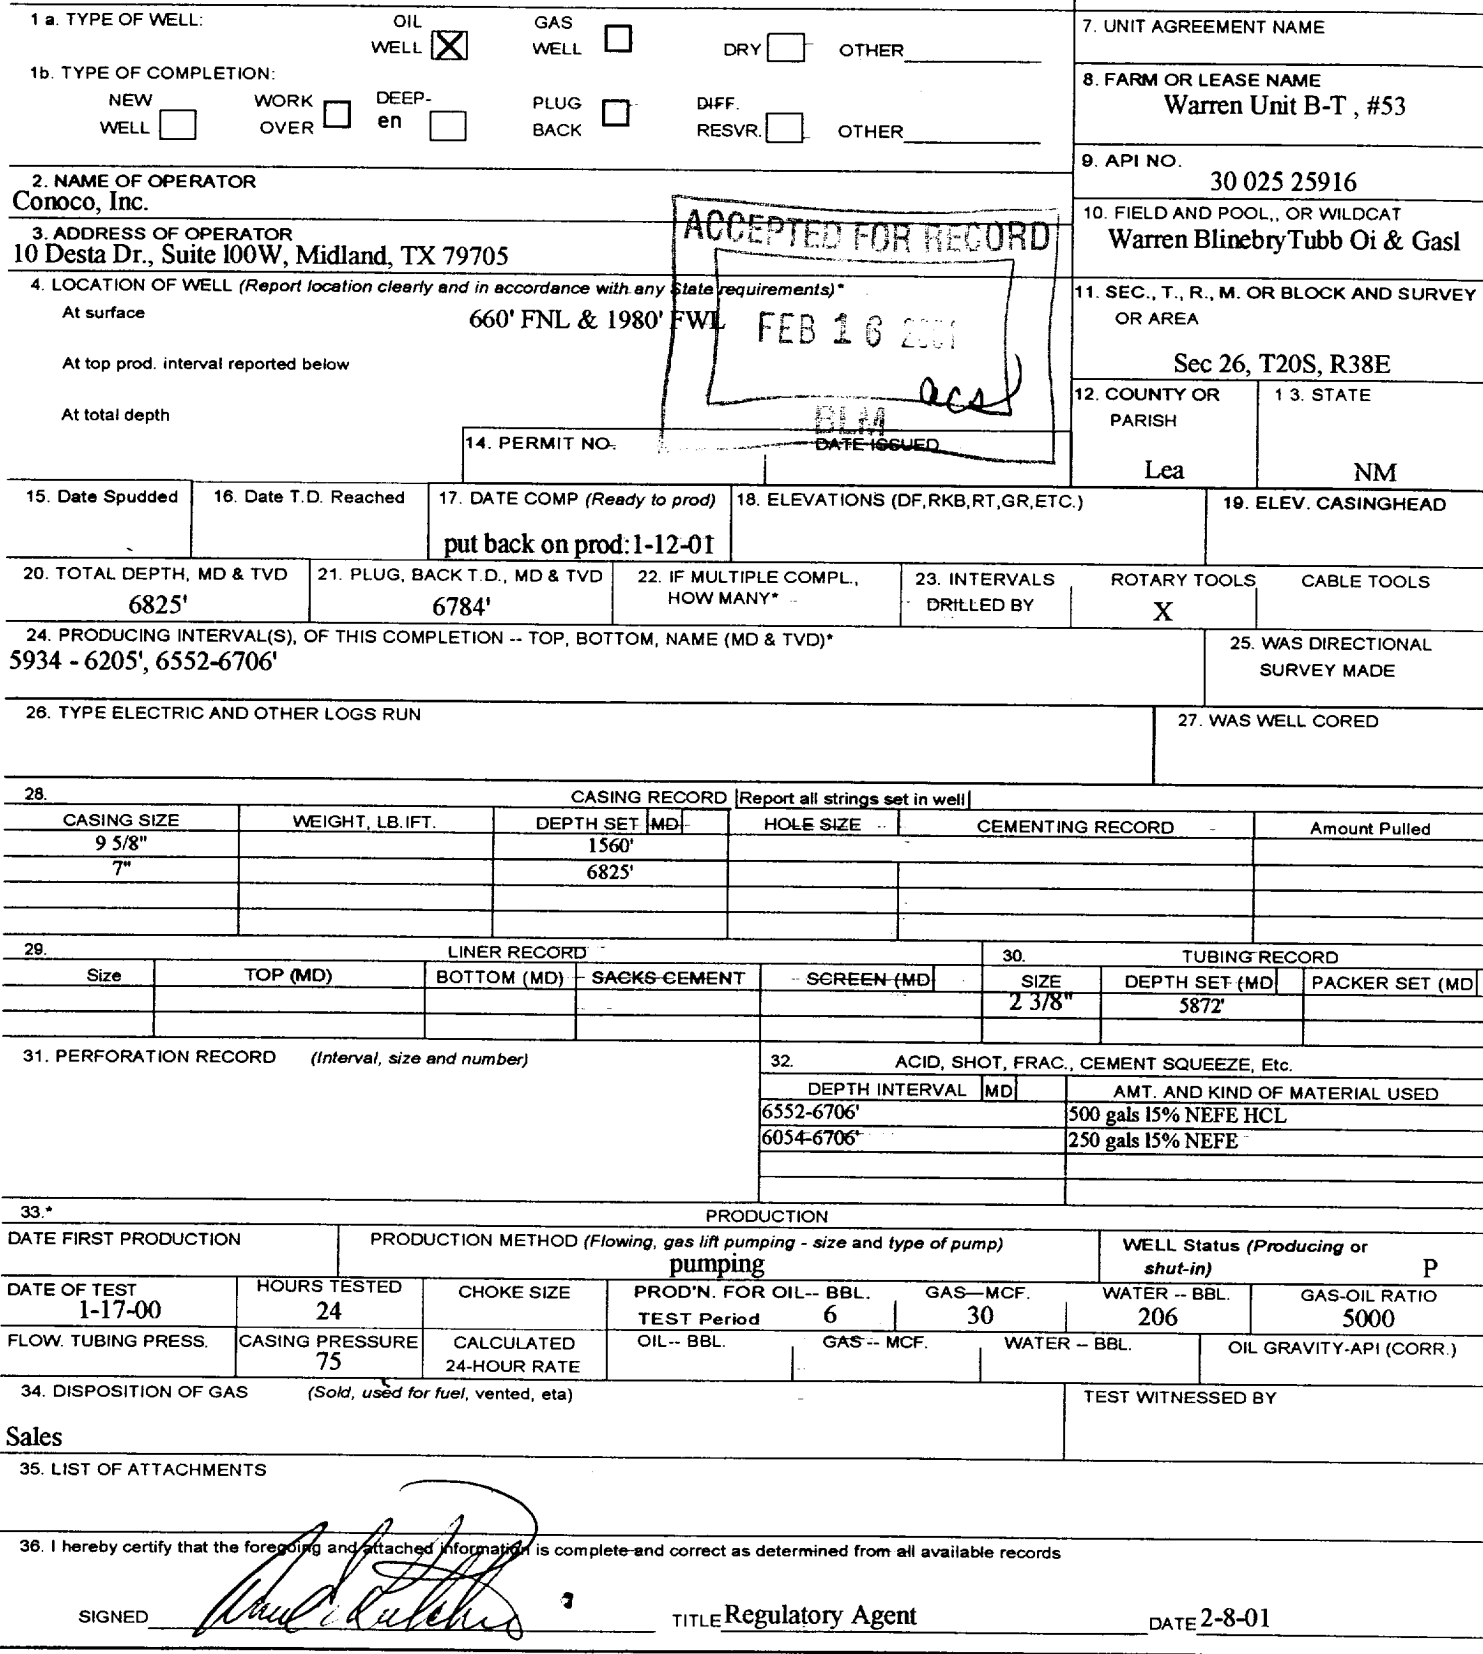 1 a. TYPE OF WELL: OIL WELL X GAS WELL DRY OTHER
7. UNIT AGREEMENT NAME
1b. TYPE OF COMPLETION:
NEW WELL WORK OVER DEEP-en PLUG BACK DIFF. RESVR. OTHER
8. FARM OR LEASE NAME
Warren Unit B-T , #53
9. API NO.
30 025 25916
2. NAME OF OPERATOR
Conoco, Inc.
10. FIELD AND POOL,, OR WILDCAT
Warren BlinebryTubb Oi & Gasl
3. ADDRESS OF OPERATOR
10 Desta Dr., Suite l00W, Midland, TX 79705
ACCEPTED FOR RECORD
FEB 16 2001
acs
BLM
4. LOCATION OF WELL (Report location clearly and in accordance with any State requirements)*
At surface
660' FNL & 1980' FWL
At top prod. interval reported below
At total depth
11. SEC., T., R., M. OR BLOCK AND SURVEY
OR AREA
Sec 26, T20S, R38E
14. PERMIT NO. DATE ISSUED
12. COUNTY OR PARISH
Lea
1 3. STATE
NM
15. Date Spudded 16. Date T.D. Reached 17. DATE COMP (Ready to prod) 18. ELEVATIONS (DF,RKB,RT,GR,ETC.) 19. ELEV. CASINGHEAD
put back on prod:1-12-01
20. TOTAL DEPTH, MD & TVD 21. PLUG, BACK T.D., MD & TVD 22. IF MULTIPLE COMPL., HOW MANY* 23. INTERVALS DRILLED BY ROTARY TOOLS CABLE TOOLS
6825' 6784' X
24. PRODUCING INTERVAL(S), OF THIS COMPLETION -- TOP, BOTTOM, NAME (MD & TVD)*
5934 - 6205', 6552-6706'
25. WAS DIRECTIONAL
SURVEY MADE
26. TYPE ELECTRIC AND OTHER LOGS RUN
27. WAS WELL CORED
28. CASING RECORD Report all strings set in well
CASING SIZE WEIGHT, LB.IFT. DEPTH SET MD HOLE SIZE CEMENTING RECORD Amount Pulled
9 5/8" 1560'
7" 6825'
29. LINER RECORD 30. TUBING RECORD
Size TOP (MD) BOTTOM (MD) SACKS CEMENT SCREEN (MD SIZE DEPTH SET (MD PACKER SET (MD
2 3/8" 5872'
31. PERFORATION RECORD (Interval, size and number)
32. ACID, SHOT, FRAC., CEMENT SQUEEZE, Etc.
DEPTH INTERVAL MD AMT. AND KIND OF MATERIAL USED
6552-6706' 500 gals l5% NEFE HCL
6054-6706' 250 gals l5% NEFE
33.* PRODUCTION
DATE FIRST PRODUCTION PRODUCTION METHOD (Flowing, gas lift pumping - size and type of pump) WELL Status (Producing or shut-in)
pumping P
DATE OF TEST HOURS TESTED CHOKE SIZE PROD'N. FOR OIL-- BBL. GAS—MCF. WATER -- BBL. GAS-OIL RATIO
1-17-00 24 TEST Period 6 30 206 5000
FLOW. TUBING PRESS. CASING PRESSURE CALCULATED 24-HOUR RATE OIL-- BBL. GAS -- MCF. WATER -- BBL. OIL GRAVITY-API (CORR.)
75
34. DISPOSITION OF GAS (Sold, used for fuel, vented, eta)
TEST WITNESSED BY
Sales
35. LIST OF ATTACHMENTS
36. I hereby certify that the foregoing and attached information is complete and correct as determined from all available records
SIGNED TITLE Regulatory Agent DATE 2-8-01